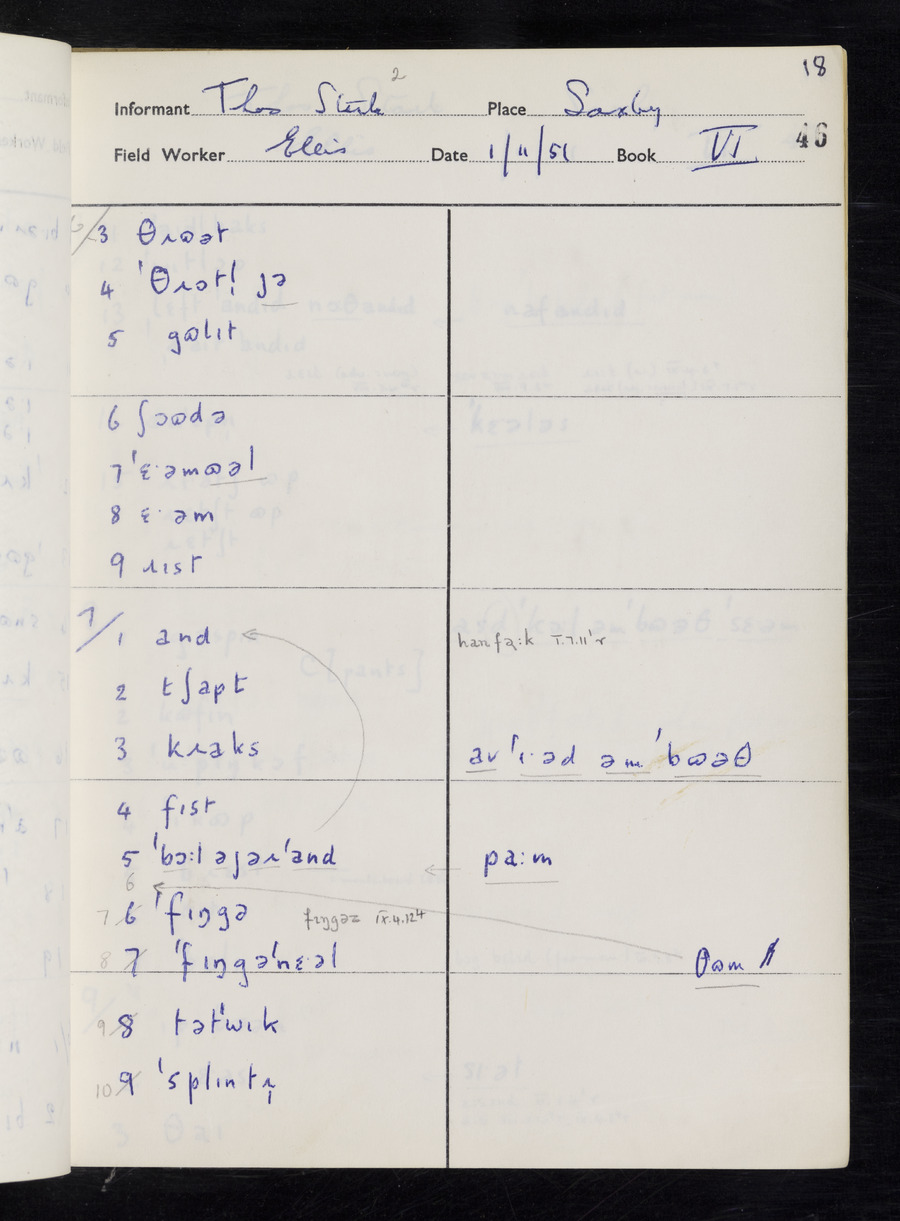 18
2
Informant Thos Stark Place Saxby
46
Field Worker Ellis Date 1/11/51 Book VI
6/3 θɹɷət
4 ˈθɹɔtl̩ ɟə
5 gɷlɪt
6 ʃɔɷdə
7 ˈɛ·əmɷəl
8 ɛ·əm
9 ɹɪst
7/1 and hanfa̜:k I.7.11'r
2 tʃapt
3 kɹaks av ˈɪ·əd əm ˈbɷəθ
4 fɪst
5 ˈbɔ:l əɟəɹ ˈand pa:m
6
7 6 ˈfɪŋgə fɪŋgəz IX.4.12⁴
8 7 ˈfɪŋgəˈnɛ·əl θɷm
9 8 tətˈwɪk
10 9 ˈsplɪntɹ̩